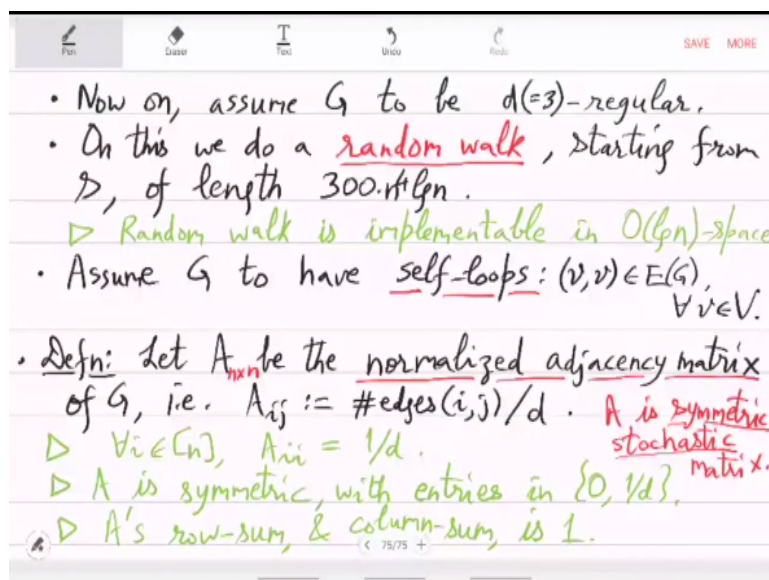 Pen Eraser Text Undo Redo SAVE MORE
• Now on, assume G to be d(=3)-regular.
• On this we do a random walk, starting from
s, of length 300.n⁴lgn.
▷ Random walk is implementable in O(lgn)-space
• Assume G to have self-loops: (v,v)∈E(G),
∀v∈V.
• Defn: Let A nxn be the normalized adjacency matrix
of G, i.e. Aij := #edges(i,j)/d. A is symmetric
stochastic
matrix.
▷ ∀i∈[n], Aii = 1/d.
▷ A is symmetric, with entries in {0, 1/d}.
▷ A's row-sum, & column-sum, is 1.
< 75/75 +